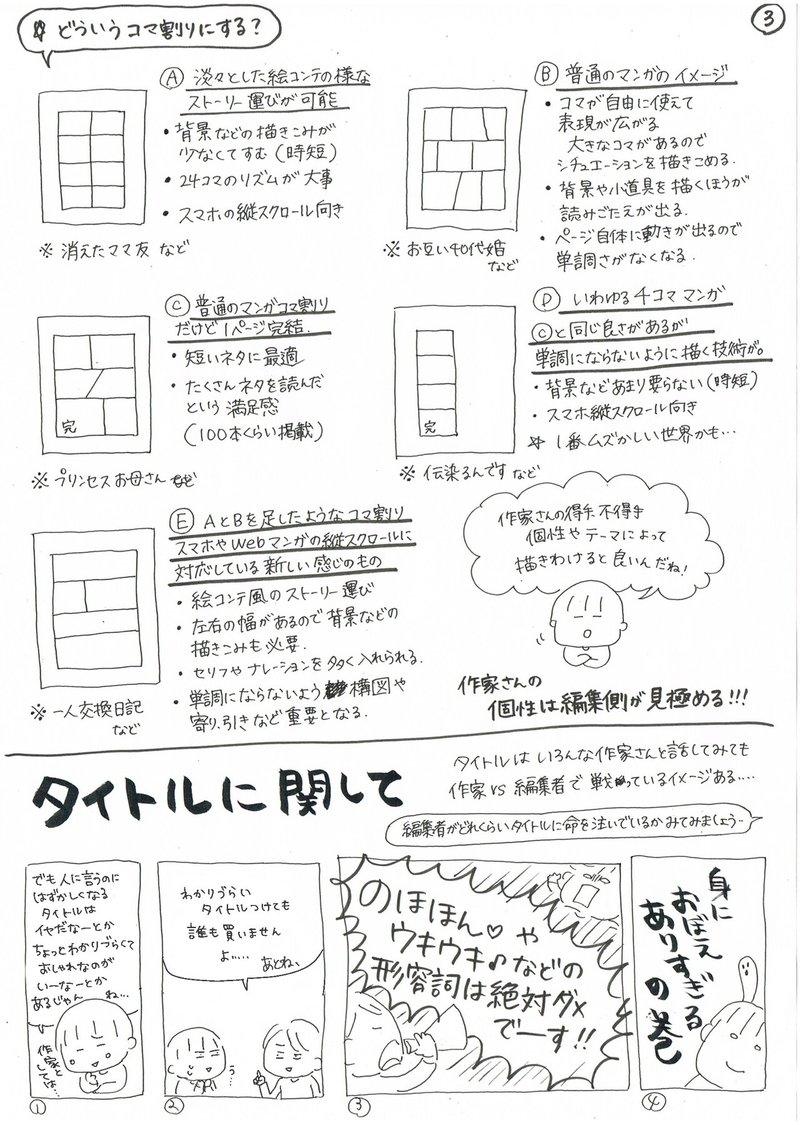 ③
☆ どういうコマ割りにする?
Ⓐ 淡々とした絵コンテの様な
ストーリー運びが可能
・背景などの描きこみが
少なくてすむ(時短)
・24コマのリズムが大事
・スマホの縦スクロール向き
※ 消えたママ友 など
Ⓑ 普通のマンガのイメージ
・コマが自由に使えて
表現が広がる
大きなコマがあるので
シチュエーションを描きこめる.
・背景や小道具を描くほうが
読みごたえが出る.
・ページ自体に動きが出るので
単調さがなくなる.
※ お互い40代婚
など
Ⓒ 普通のマンガコマ割り
だけど1ページ完結.
・短いネタに最適
・たくさんネタを読んだ
という満足感
(100本くらい掲載)
完
※ プリンセスお母さん など
Ⓓ いわゆる4コママンガ
Ⓒと同じ良さがあるが
単調にならないように描く技術が。
・背景などあまり要らない(時短)
・スマホ縦スクロール向き
☆ 1番ムズかしい世界かも…
完
※ 伝染るんです など
Ⓔ AとBを足したようなコマ割り
スマホやWebマンガの縦スクロールに
対応している新しい感じのもの
・絵コンテ風のストーリー運び
・左右の幅があるので背景などの
描きこみも必要.
・セリフやナレーションを多く入れられる.
・単調にならないよう構図や
寄り、引きなど重要となる.
※ 一人交換日記
など
作家さんの得手不得手
個性やテーマによって
描きわけると良いんだね!
作家さんの
個性は編集側が見極める!!!
タイトルに関して
タイトルはいろんな作家さんと話してみても
作家vs編集者で戦っているイメージある….
編集者がどれくらいタイトルに命を注いでいるかみてみましょう..
でも人に言うのに
はずかしくなる
タイトルは
イヤだなーとか
ちょっとわかりづらくて
おしゃれなのが
いーなーとか
あるじゃん ね…
作家と
しては…
①
わかりづらい
タイトルつけても
誰も買いません
よ…. あとね、
う…
②
のほほん♡や
ウキウキ♪などの
形容詞は絶対ダメ
でーす!!
③
身に
おぼえ
ありすぎる
の巻
④